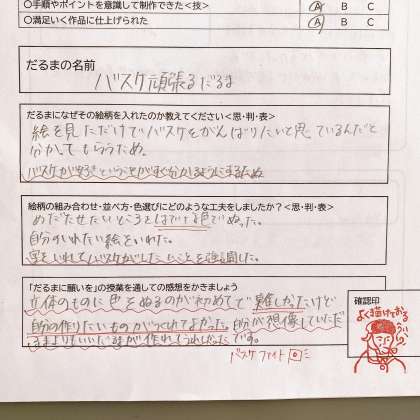 ○手順やポイントを意識して制作できた<技> A B C
○満足いく作品に仕上げられた A B C
だるまの名前
バスケ頑張るだるま
だるまになぜその絵柄を入れたのか教えてください<思・判・表>
絵を見ただけでバスケをがんばりたいと思っているんだと
分かってもらうため。
バスケが好きということがすぐ分かるようにするため
絵柄の組み合わせ・並べ方・色選びにどのような工夫をしましたか?<思・判・表>
めだたせたいところをはでな色でぬった。
自分のいれたい絵をいれた。
星をいれてバスケがしたいことを強調した。
「だるまに願いを」の授業を通しての感想をかきましょう
立体のものに色をぬるのが初めてで難しかったけど
自分の作りたいものがつくれてよかった。自分が想像していただ
るまよりもいいだるまが作れてうれしかったです。
バスケファイト
確認印
よく描けておる